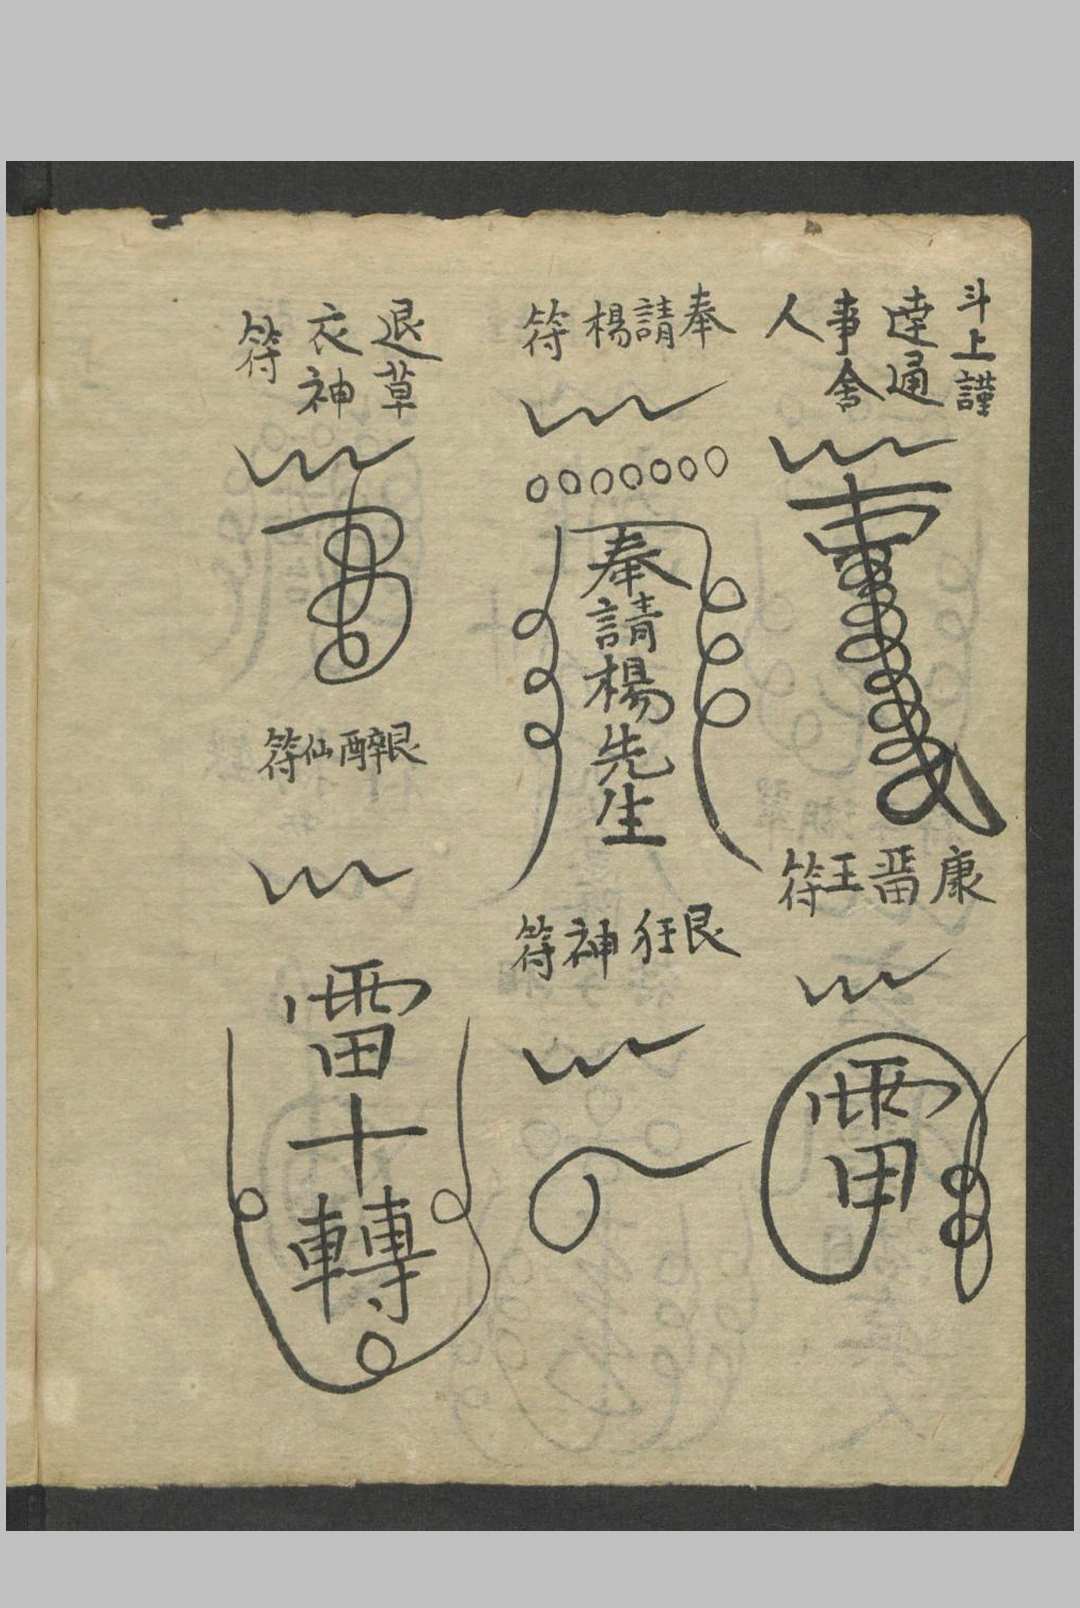 斗上謹
達通
事舍
人
康王符
奉請楊符
奉請楊先生
艮狂神符
退草
衣神
符
艮醉仙符
雷十轉